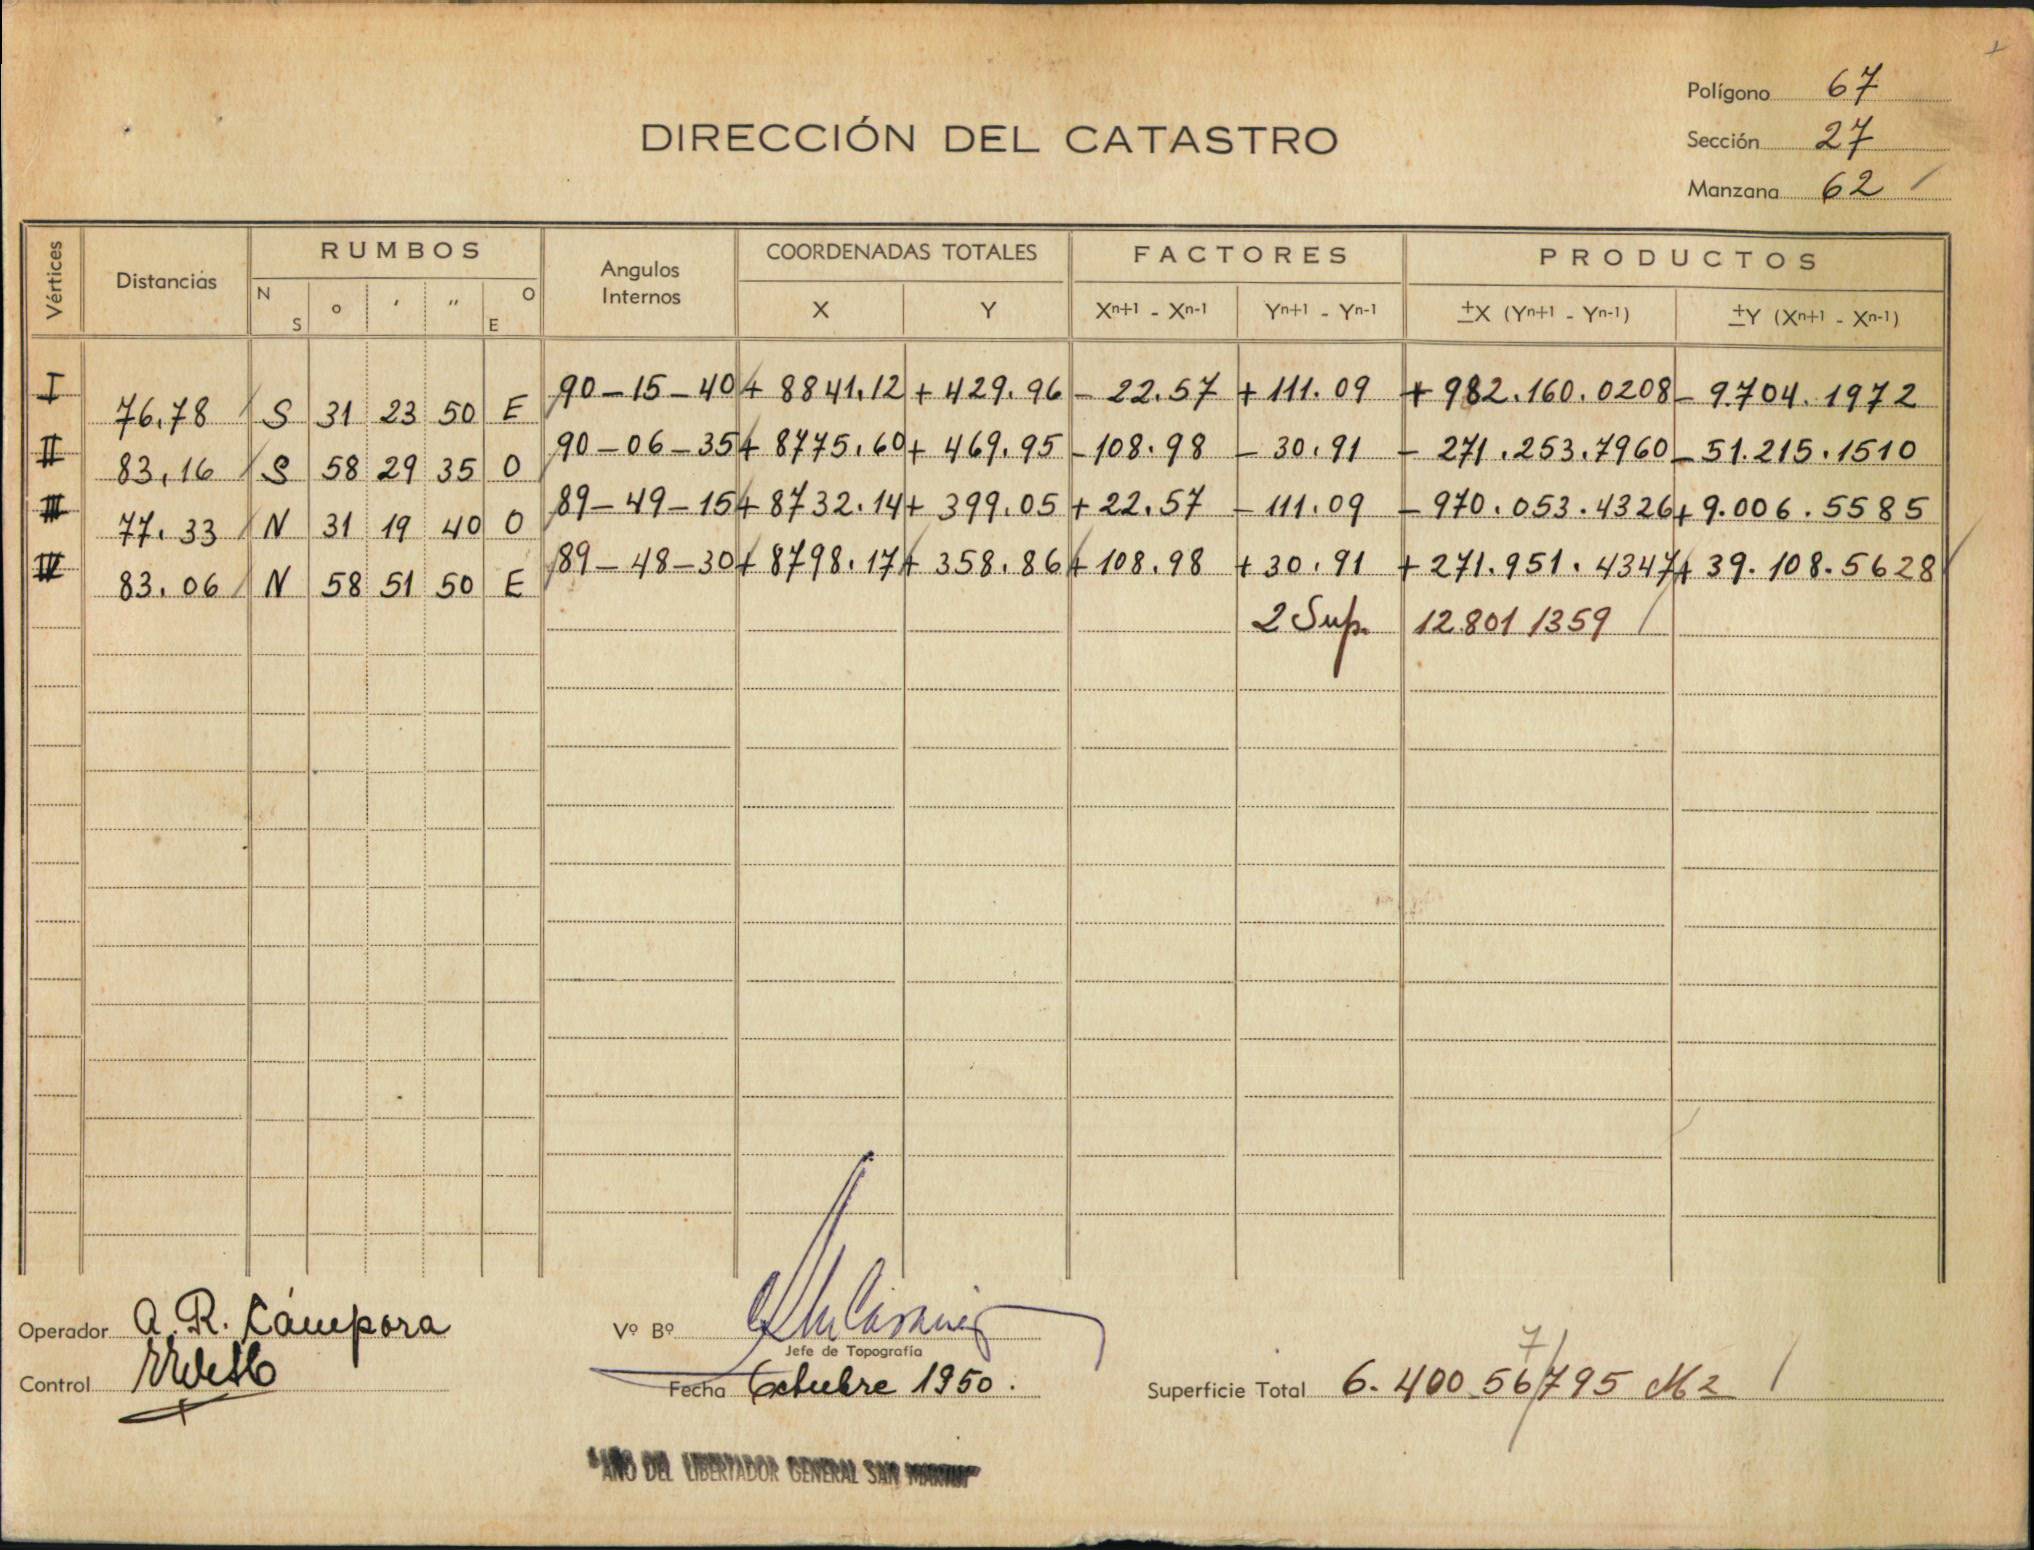 Polígono 67
DIRECCIÓN DEL CATASTRO
Sección 27
Manzana 62
Vértices Distancias RUMBOS Angulos Internos COORDENADAS TOTALES FACTORES PRODUCTOS
N S ° ' " E O X Y Xn+1 - Xn-1 Yn+1 - Yn-1 ±X (Yn+1 - Yn-1) ±Y (Xn+1 - Xn-1)
I 90-15-40 + 8841.12 + 429.96 - 22.57 + 111.09 + 982.160.0208 - 9.704.1972
76.78 S 31 23 50 E
II 90-06-35 + 8775.60 + 469.95 - 108.98 - 30.91 - 271.253.7960 - 51.215.1510
83,16 S 58 29 35 O
III 89-49-15 + 8732.14 + 399.05 + 22.57 - 111.09 - 970.053.4326 + 9.006.5585
77.33 N 31 19 40 O
IV 89-48-30 + 8798.17 + 358.86 + 108.98 + 30.91 + 271.951.4347 + 39.108.5628
83.06 N 58 51 50 E
2 Sup. 12.801 1359
Operador A. R. Cámpora
Vº Bº
Jefe de Topografía
Control
Fecha Octubre 1950.
7
Superficie Total 6.400.56795 M2
"AÑO DEL LIBERTADOR GENERAL SAN MARTIN"